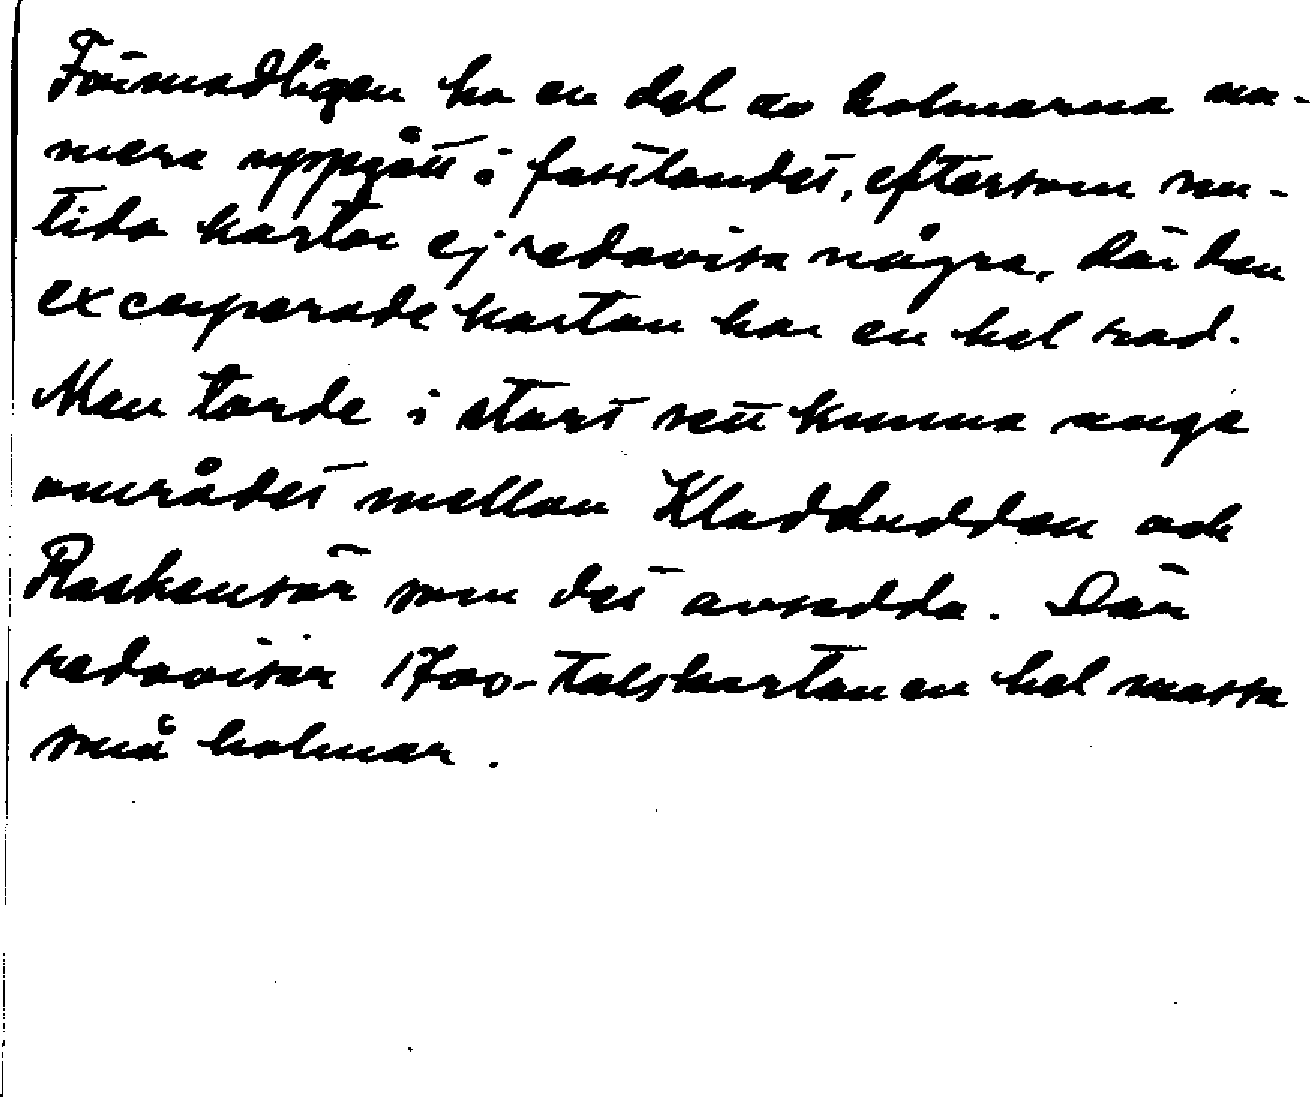 Förmodligen ha en del av holmarna nu-
mera uppgått i fastlandet, eftersom nu-
tida kartor ej redovisa några, där den
excerperade kartan har en hel rad.
Man torde i stort sett kunna ange
området mellan Kladdudden och
Raskensör som det avsedda. Där
redovisar 1700-talskartan en hel massa
små holmar.